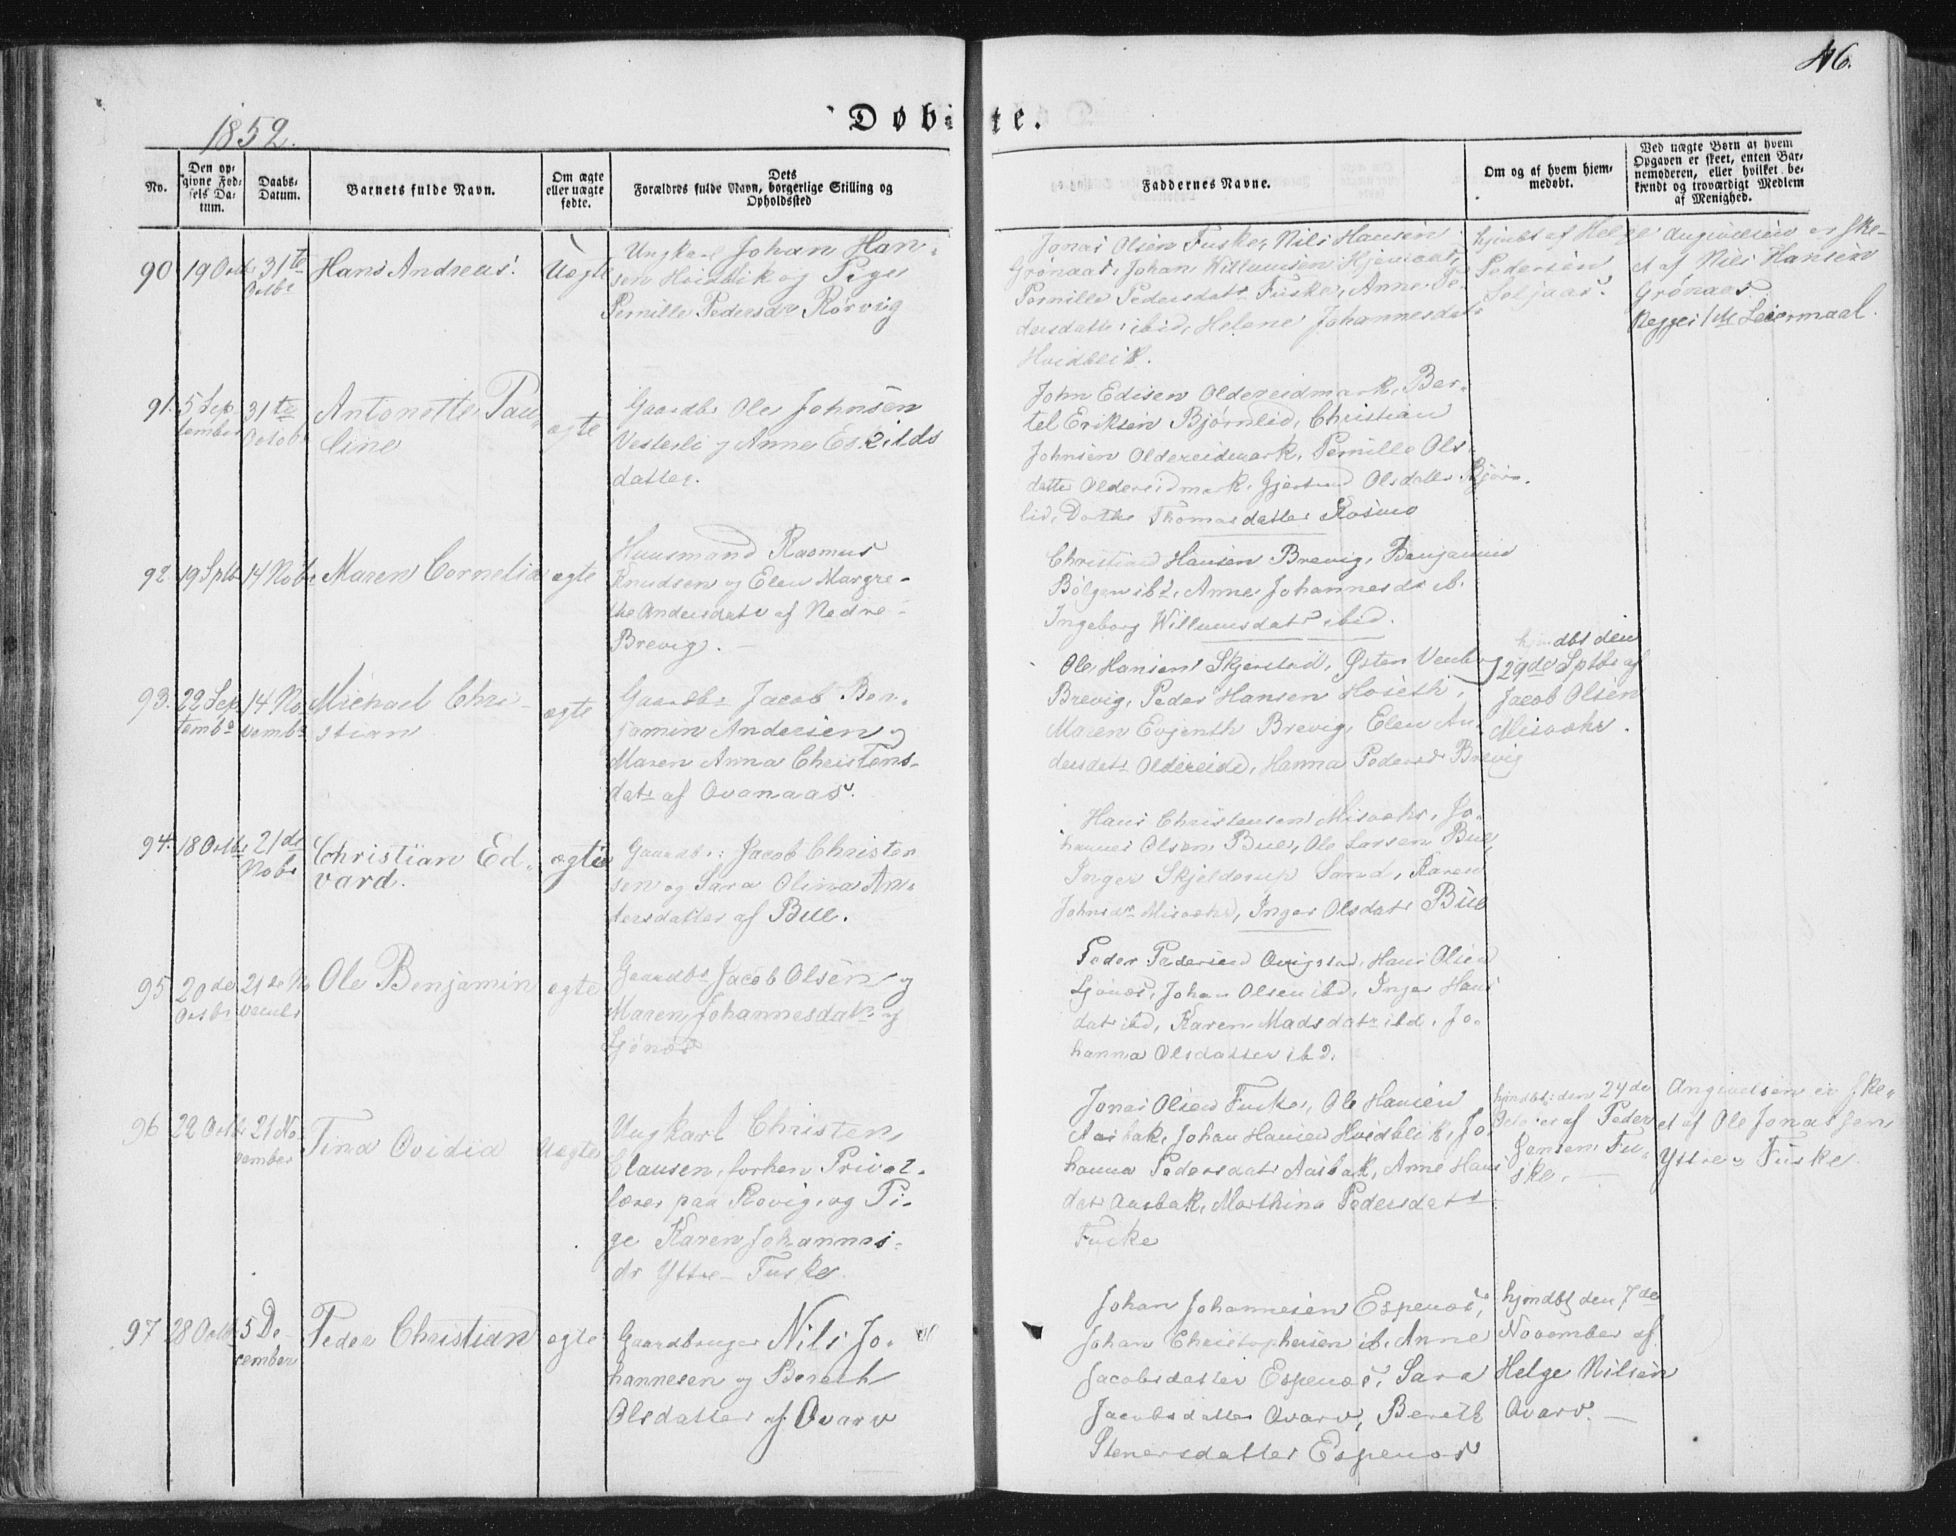 46.
1852.
Døbte.
No.
Den opgivne Fødsels Datum.
Daabs-Datum.
Barnets fulde Navn.
Om ægte eller uægte fødte.
Dets Forældres fulde Navn, borgerlige Stilling og Opholdssted
Faddernes Navne.
Om og af hvem hjemmedøbt.
Ved uægte Børn af hvem Opgaven er skeet, enten Barnemoderen, eller hvilket bekjendt og troværdigt Medlem af Menighed.
90
19 Octb
31te
Octbr
Hans Andreas.
Uægte
Ungkarl Johan Han-
sen Hvidblik og Pige
Pernille Pedersdr Rørvig
Jonas Olsen Fuske, Nils Hansen
Grønaas, Johan Willumsen
Pernille Pedersdatr Fuske, Anne Pe-
dersdatter ibid, Helene Johannesdatr
Hvidblik.
hjmdbt af Helge
Pedersen
Angivelsen er ske-
et af Nils Hansen
Grønaas.
Begges 1ste Leiermaal.
91.
5 Sep-
tember
31te
Octob
Antonette Pau-
line
ægte
Gaardbr Ole Johnsen
Vesterli og Anne Eskilds
datter.
John Edisen Oldereidmark, Ber-
tel Eriksen Bjørnlid, Christian
Johnsen Oldereidmark, Pernille Ols-
datter Oldereidmark, Gjertrud Olsdatter Bjørn-
lid, Dorthe Thomasdatter Rosmo
92
19 Sptb
14 Nobr
Maren Cornelia
ægte
Huusmand Rasmus
Knudsen og Elen Margre-
the Andersdatr af Nedre
Brevig.
Christian Hansen Brevig, Benjamin
Bølgen ibd, Anne Johannesdr ib.
Ingeborg Willumsdatr ibid.
93.
22 Sep-
tembr
14 No-
vembr
Michael Chri-
stian
ægte
Gaardbr Jacob Ben-
jamin Andersen og
Maren Anna Christens-
datr af Qvanaas.
Ole Hansen Skjerstad, Østen
Brevig, Peder Hansen Hoseth,
Maren Evjenth Brevig, Elen An-
dersdatr Oldereide, Hanna Pedersd Brevig
hjmdbt den
29de Sptbr af
Jacob Olsen
Misvær.
94.
18 Octbr
21de
Nobr
Christian Ed-
vard.
ægte
Gaardbr: Jacob Christen-
sen og Sara Olina An-
dersdatter af Bue.
Hans Christensen Misvær, Jo-
hannes Olsen Bue, Ole Larsen Bue,
Inger Skjelderup Sand, Karen
Johnsdr Misvær, Inger Olsdatr Bue
95
20de
Octbr
21de No-
vembr
Ole Benjamin
ægte
Gaardbr Jacob Olsen og
Maren Johannesdatr
Ljønes
Peder Pedersen Hans Olsen
Ljønes, Johan Olsen ibd, Inger Hans
datr ibd, Karen Madsdatr ibd, Jo-
hanna Olsdatter ibd.
96
22 Octbr
21 No-
vember
Tina Ovidia
Uægte
Ungkarl Christen
Clausen, forhen Privat-
lærer paa Røvig, og Pi-
ge Karen Johannes-
dr Yttre Fuske.
Jonas Olsen Fuske, Ole Hansen
Aasbak, Johan Hansen Hvidblik, Jo-
hanna Pedersdatr Aasbak, Anne Hans
datr Aasbak, Marthina Pedersdatr
Fuske
hjmdbt: den 24de
af Peder
Jensen Fu-
ske.
Angivelsen er ske-
et af Ole Jonassen
Yttre Fuske
97
28 Octb
5 De-
cember
Peder Christian
ægte
Gaardbruger Nils Jo-
hannesen og Bereth
Olsdatter af Qvarv
Johan Johannesen Espenes,
Johan Christophersen ib, Anne
Jacobsdatter Espenes, Sara
Jacobsdatter Qvarv, Bereth
Stenersdatter Espenes
hjmdbt den 7de
November af
Helge Nilsen
Qvarv.